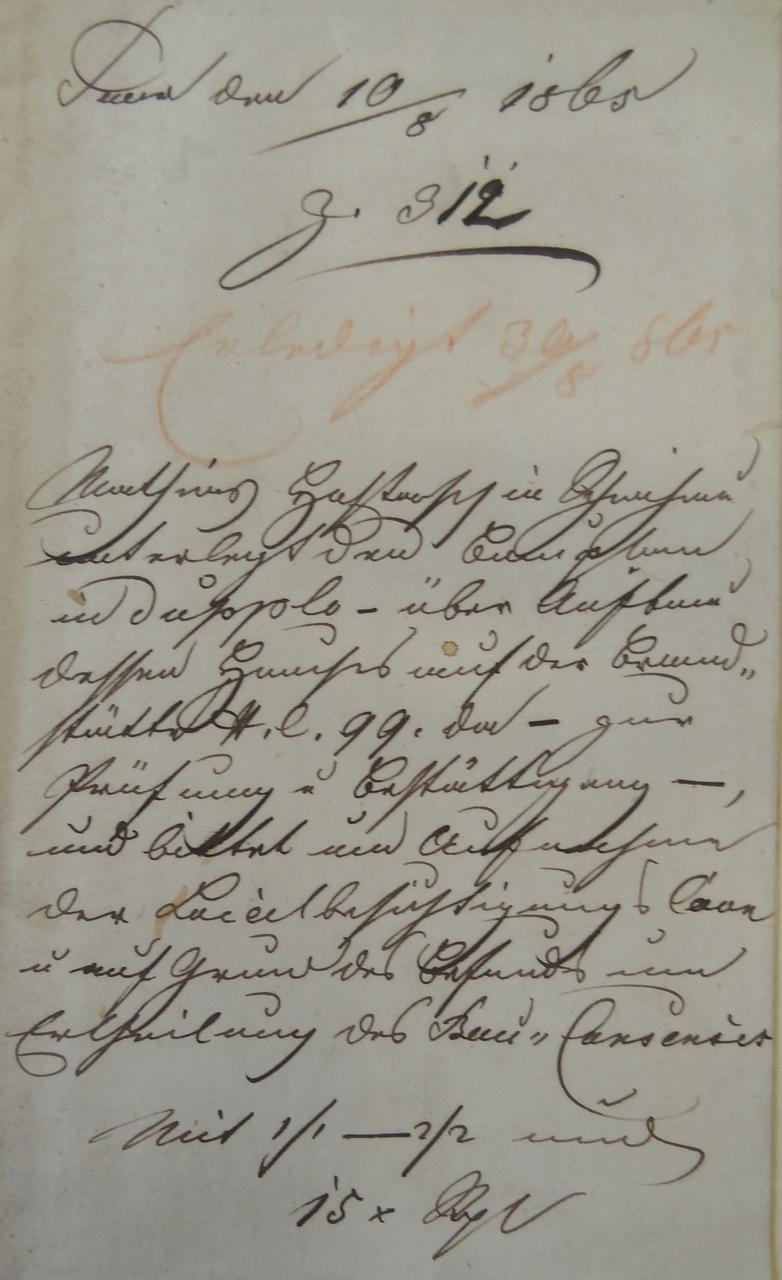 den 10/8 1865
Z. 312
Erledigt 30/8 865
Mathias in
unterlegt den Bauplan
in Dupplo – über Aufbau
dessen Hauses auf der Brand„
stätte H. C. 99. da – zur
Prüfung u Bestättigung –,
und bittet um Aufnahme
der Localbesichtigungs Coon
u auf Grund des Befunds um
Ertheilung des Bau„Consenses
Mit 1/1 — 2/2 und
15 x